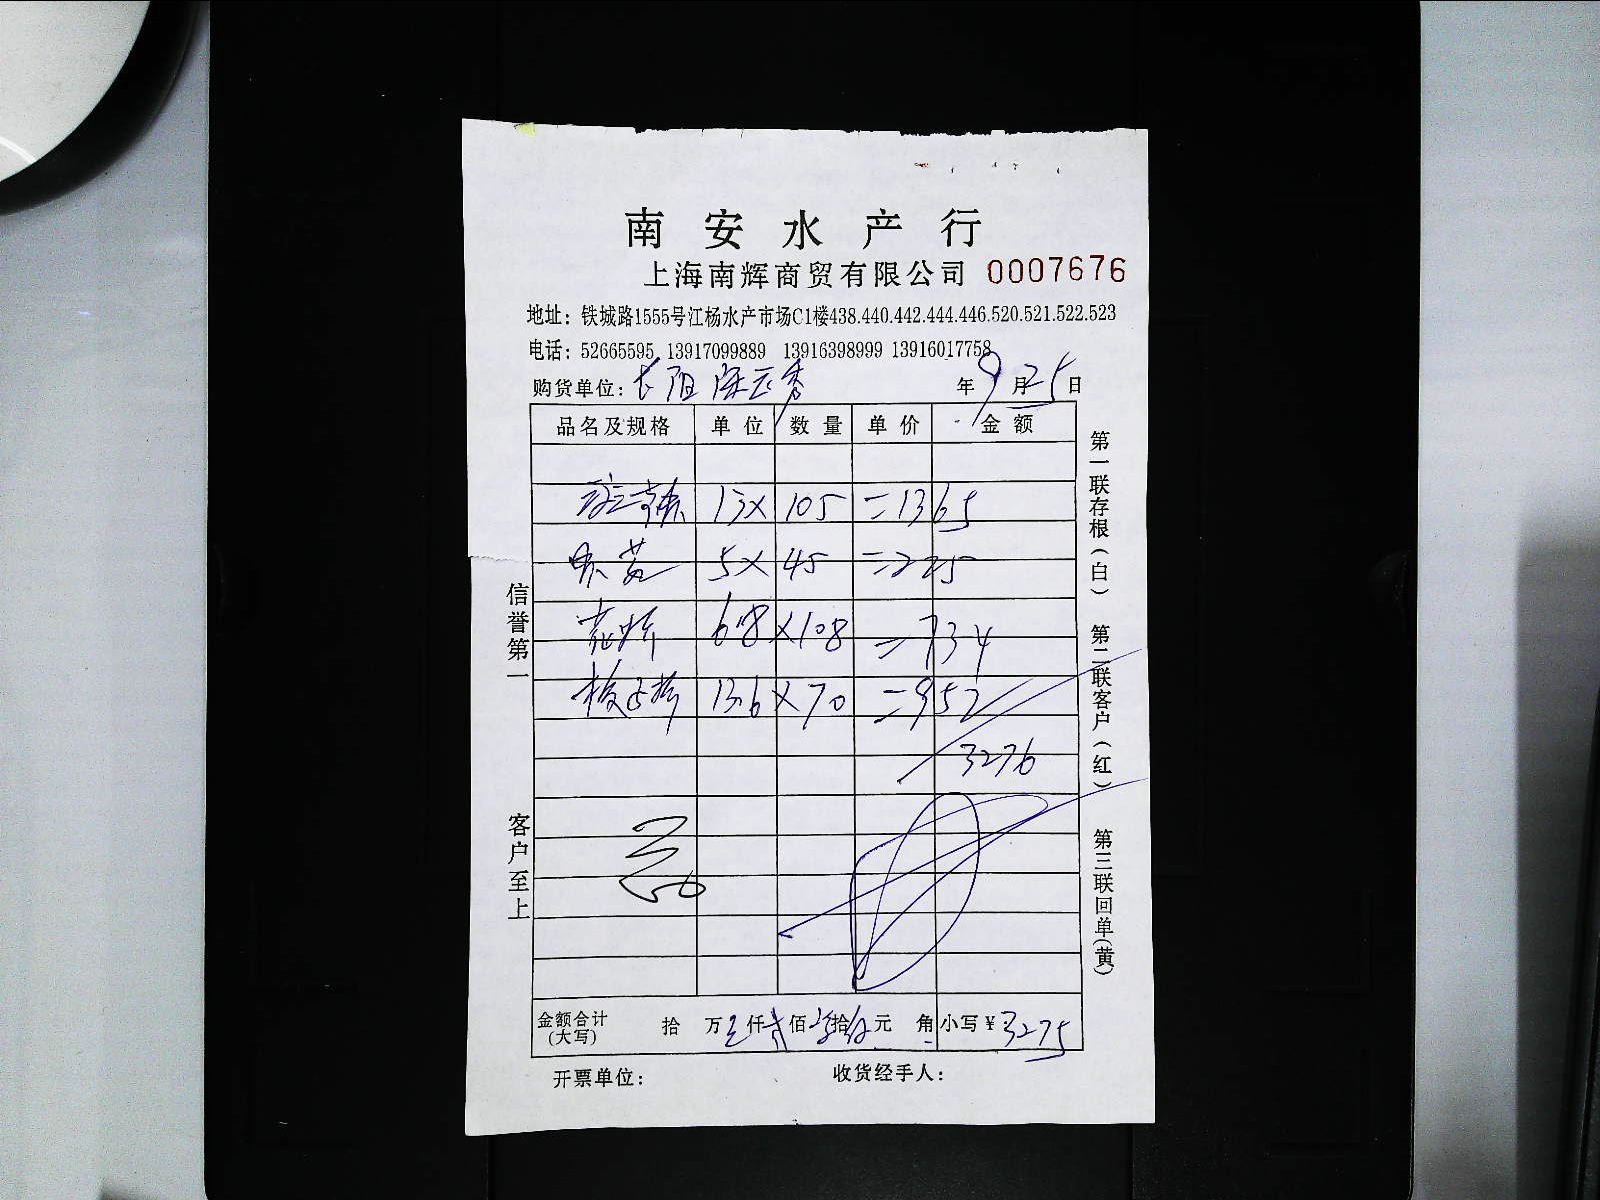 南安水产行
上海南辉商贸有限公司 0007676
地址：铁城路1555号江杨水产市场C1楼438.440.442.444.446.520.521.522.523
电话：52665595 13917099889 13916398999 13916017758
购货单位：长阳 年9月25日
品名及规格 单位 数量 单价 金额
13× 105 =1365
5× 45 =225
6.8 ×108 =734
13.6 ×70 =952
3276
金额合计(大写) 拾 万 仟 佰 拾 元 角 小写￥3275
开票单位： 收货经手人：
信誉第一
客户至上
第一联存根(白)
第二联客户(红)
第三联回单(黄)